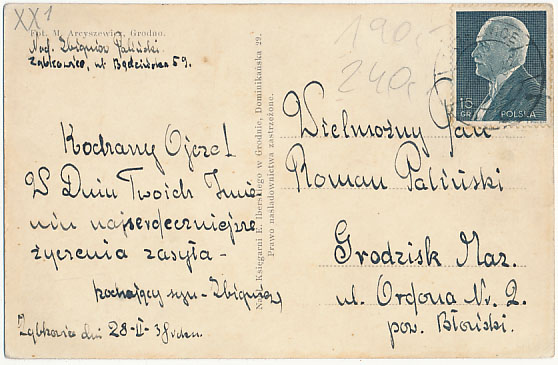 XX1
Fot. M. Arcyszewicz, Grodno.
Nad. Zbigniew Paliński
Ząbkowice, ul. Będzińska 59.
Kochany Ojcze!
W Dniu Twoich Imie
nin najserdeczniejsze
życzenia zasyła -
kochający syn - Zbigniew
Ząbkowice dn. 28-II-38
Nakł. Księgarni E. Iberskiego w Grodnie, Dominikańska 29.
Prawo naśladownictwa zastrzeżone.
190,-
240,-
15
GR
POLSKA
Wielmożny Pan
Roman Paliński
Grodzisk Maz.
ul. Ordona Nr. 2.
pow. Błoński.